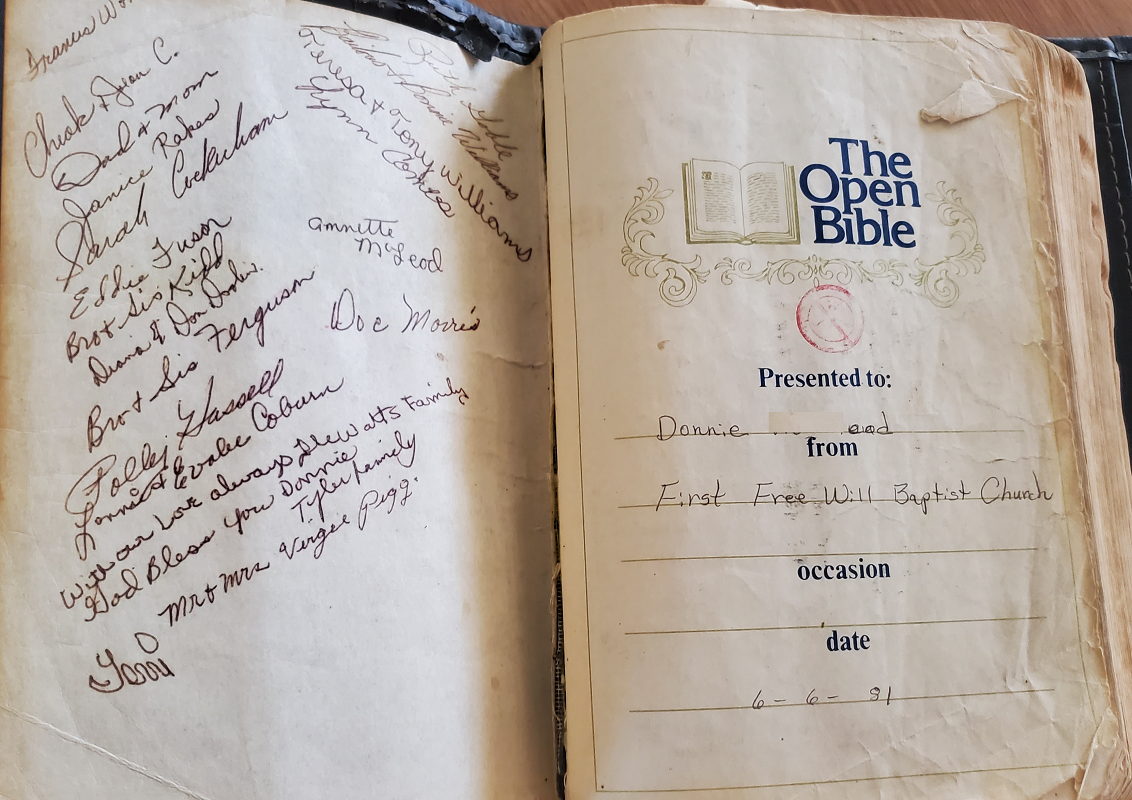 Francis
Cheak & Jean C.
Dad & Mom
Janice Rakes
Sarah Cockerham
Eddie Fuson
Bro & Sis Kidd
& Don
Bro & Sis Ferguson
Polley Hassell
Lonnie & Evalee Coburn
With our Love always Drewatts Family
God Bless you Donnie
Tyler family
Mr & Mrs Virgee Pigg.
Terri
Ruth
Williams
Teresa & Tony Williams
Lynn Combs
Annette
McLeod
Doc Morris
The
Open
Bible
Presented to:
Donnie ead
from
First Free Will Baptist Church
occasion
date
6 - 6 - 81